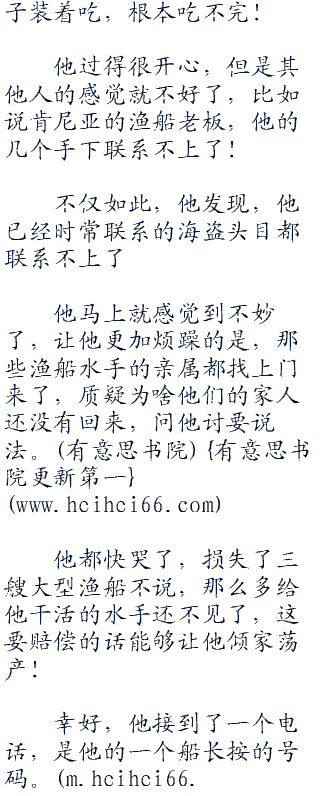 子装着吃，根本吃不完！
他过得很开心，但是其
他人的感觉就不好了，比如
说肯尼亚的渔船老板，他的
几个手下联系不上了！
不仅如此，他发现，他
已经时常联系的海盗头目都
联系不上了
他马上就感觉到不妙
了，让他更加烦躁的是，那
些渔船水手的亲属都找上门
来了，质疑为啥他们的家人
还没有回来，问他讨要说
法。(有意思书院) {有意思书
院更新第一}
(www.hcihci66.com)
他都快哭了，损失了三
艘大型渔船不说，那么多给
他干活的水手还不见了，这
要赔偿的话能够让他倾家荡
产！
幸好，他接到了一个电
话，是他的一个船长按的号
码。(m.hcihci66.